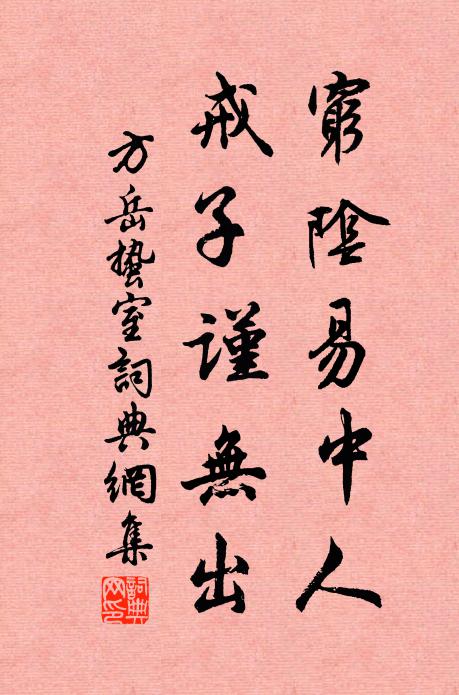 窮陰易中人
戒子謹無出
方岳蟄室詞典網集
詞典網印